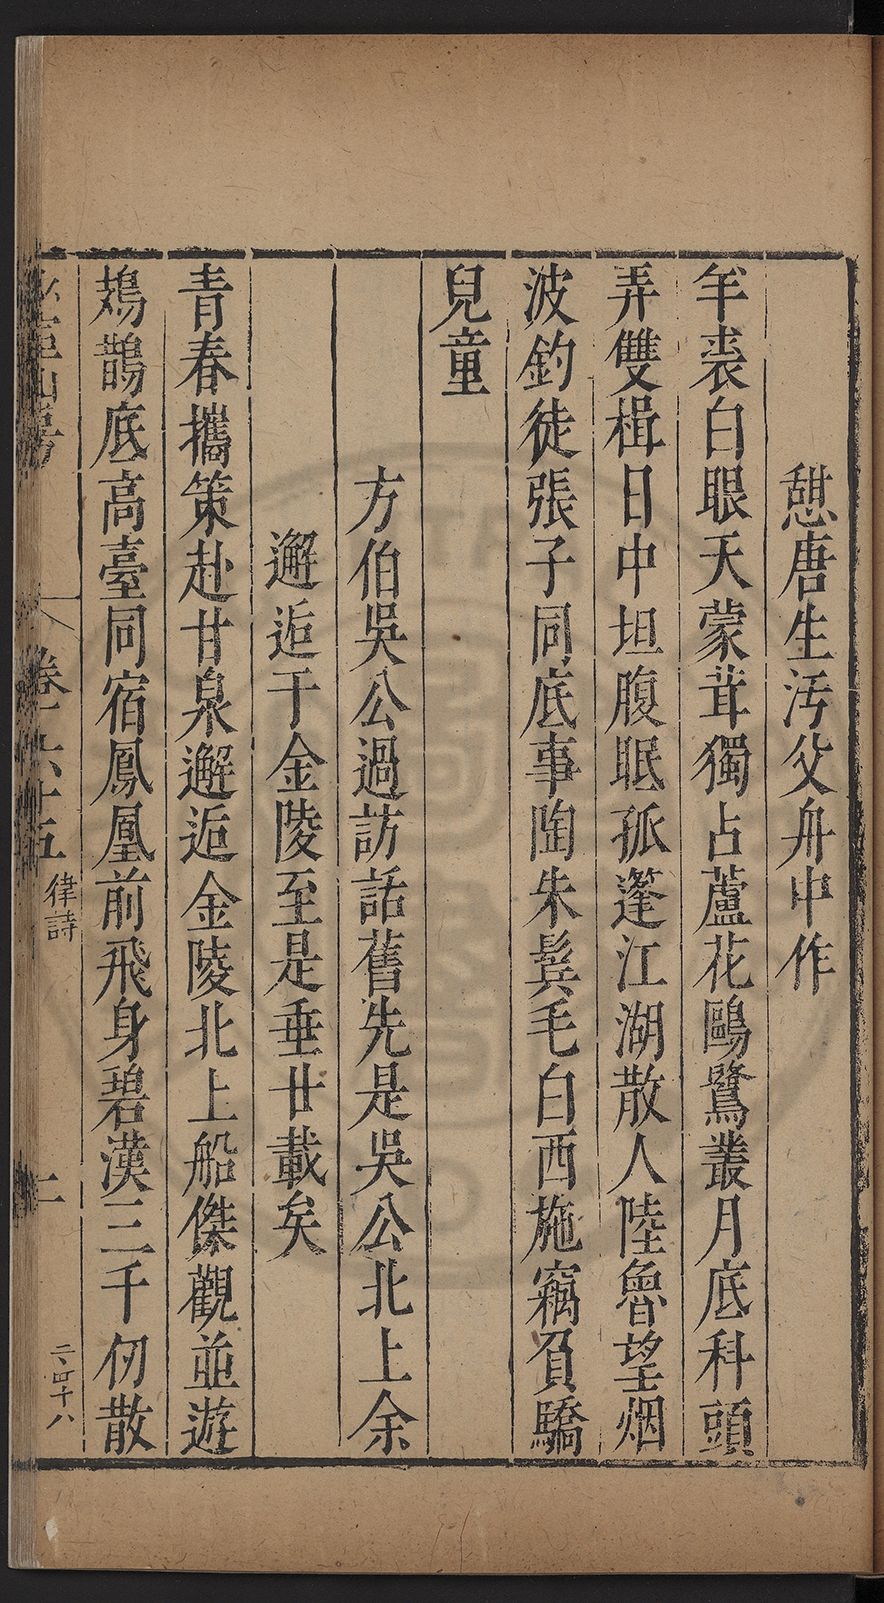 憇唐生汚父舟中作
羊裘白眼天蒙茸獨占蘆花鷗鷺叢月底科頭
弄雙楫日中坦腹眠孤篷江湖散人陸魯望烟
波釣徒張子同底事陶朱鬓毛白西施竊負驕
兒童
方伯吳公過訪話舊先是吳公北上余
邂逅于金陵至是垂廿載矣
青春攜策赴甘泉邂逅金陵北上船傑觀並遊
鳷鵲底高臺同宿鳳凰前飛身碧漢三千仞散
山房
律詩
二
二千四十八